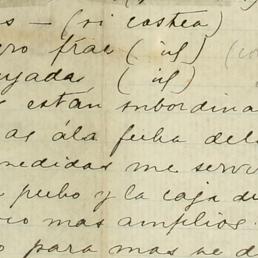 s — (si costea)
ero frac (id)
ayada (id)
están subordina
as á la fecha del
medidas me servi
pecho y la caja de
co mas amplios.
o para mas se d